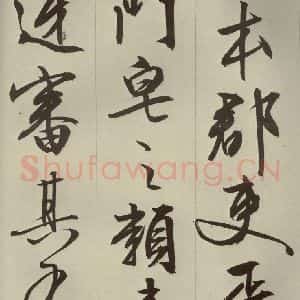 本郡吏
門皂々頼
迷審其
Shufawang.CN